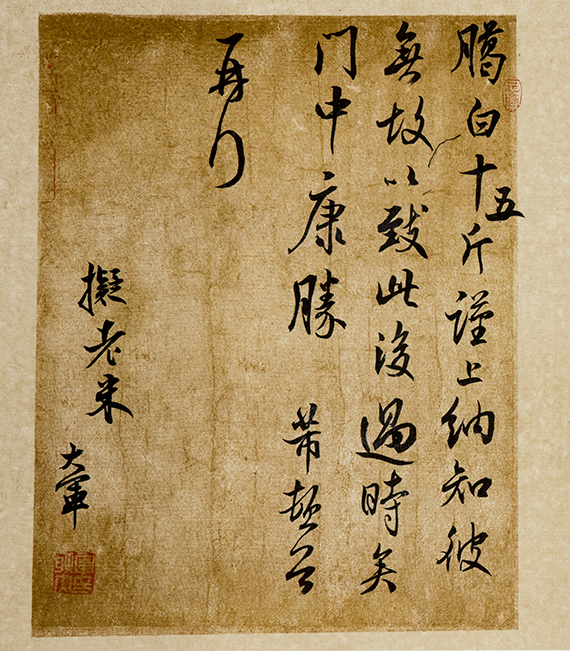 臈白十五斤謹上納知彼
無故以致此後過時矣
門中康勝 芾頓首
再
擬老米
大